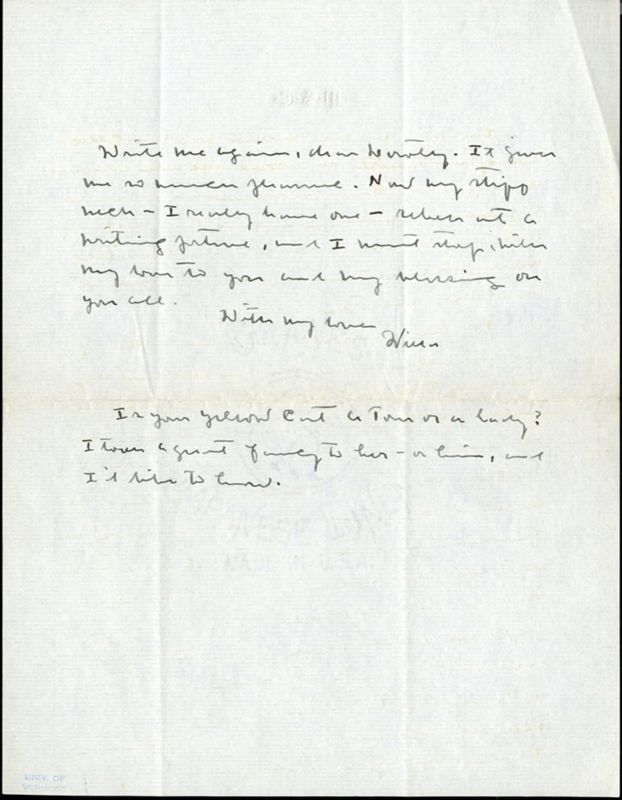 Write me again, dear Dorothy. It gives
me so much pleasure. Now my stiff
neck - I really have one - rebels at a
writing posture, and I must stop, with
my love to you and my blessing on
you all.
With my love
Willa
Is your yellow Cat a Tom or a Lady?
I took a great fancy to her - or him, and
I'd like to know.
UNIV. OF
VERMONT